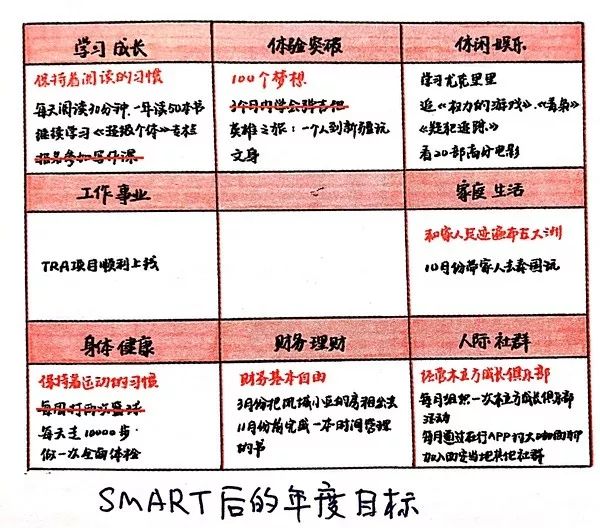 学习成长
保持着阅读的习惯
每天阅读30分钟,一年读50本书
继续学习《超级个体》专栏
报名参加写作课
体验突破
100个梦想
3个月内学会弹吉他
英雄之旅:一个人到新疆玩
文身
休闲娱乐
学习尤克里里
追《权力的游戏》《黄泰》
《疑犯追踪》
看20部高分电影
工作事业
TRA项目顺利上线
家庭生活
和家人足迹遍布五大洲
10月份带家人去泰国玩
身体健康
保持着运动的习惯
每周打两次篮球
每天走10000步
做一次全面体检
财务理财
财务基本自由
3月份把凤城小区的房租出去
11月份前完成一本时间管理
的书
人际社群
经营木立方成长俱乐部
每月组织一次木立方成长俱乐部
活动
每月通过在行APP约大咖面聊
加入西安当地其他社群
SMART后的年度目标